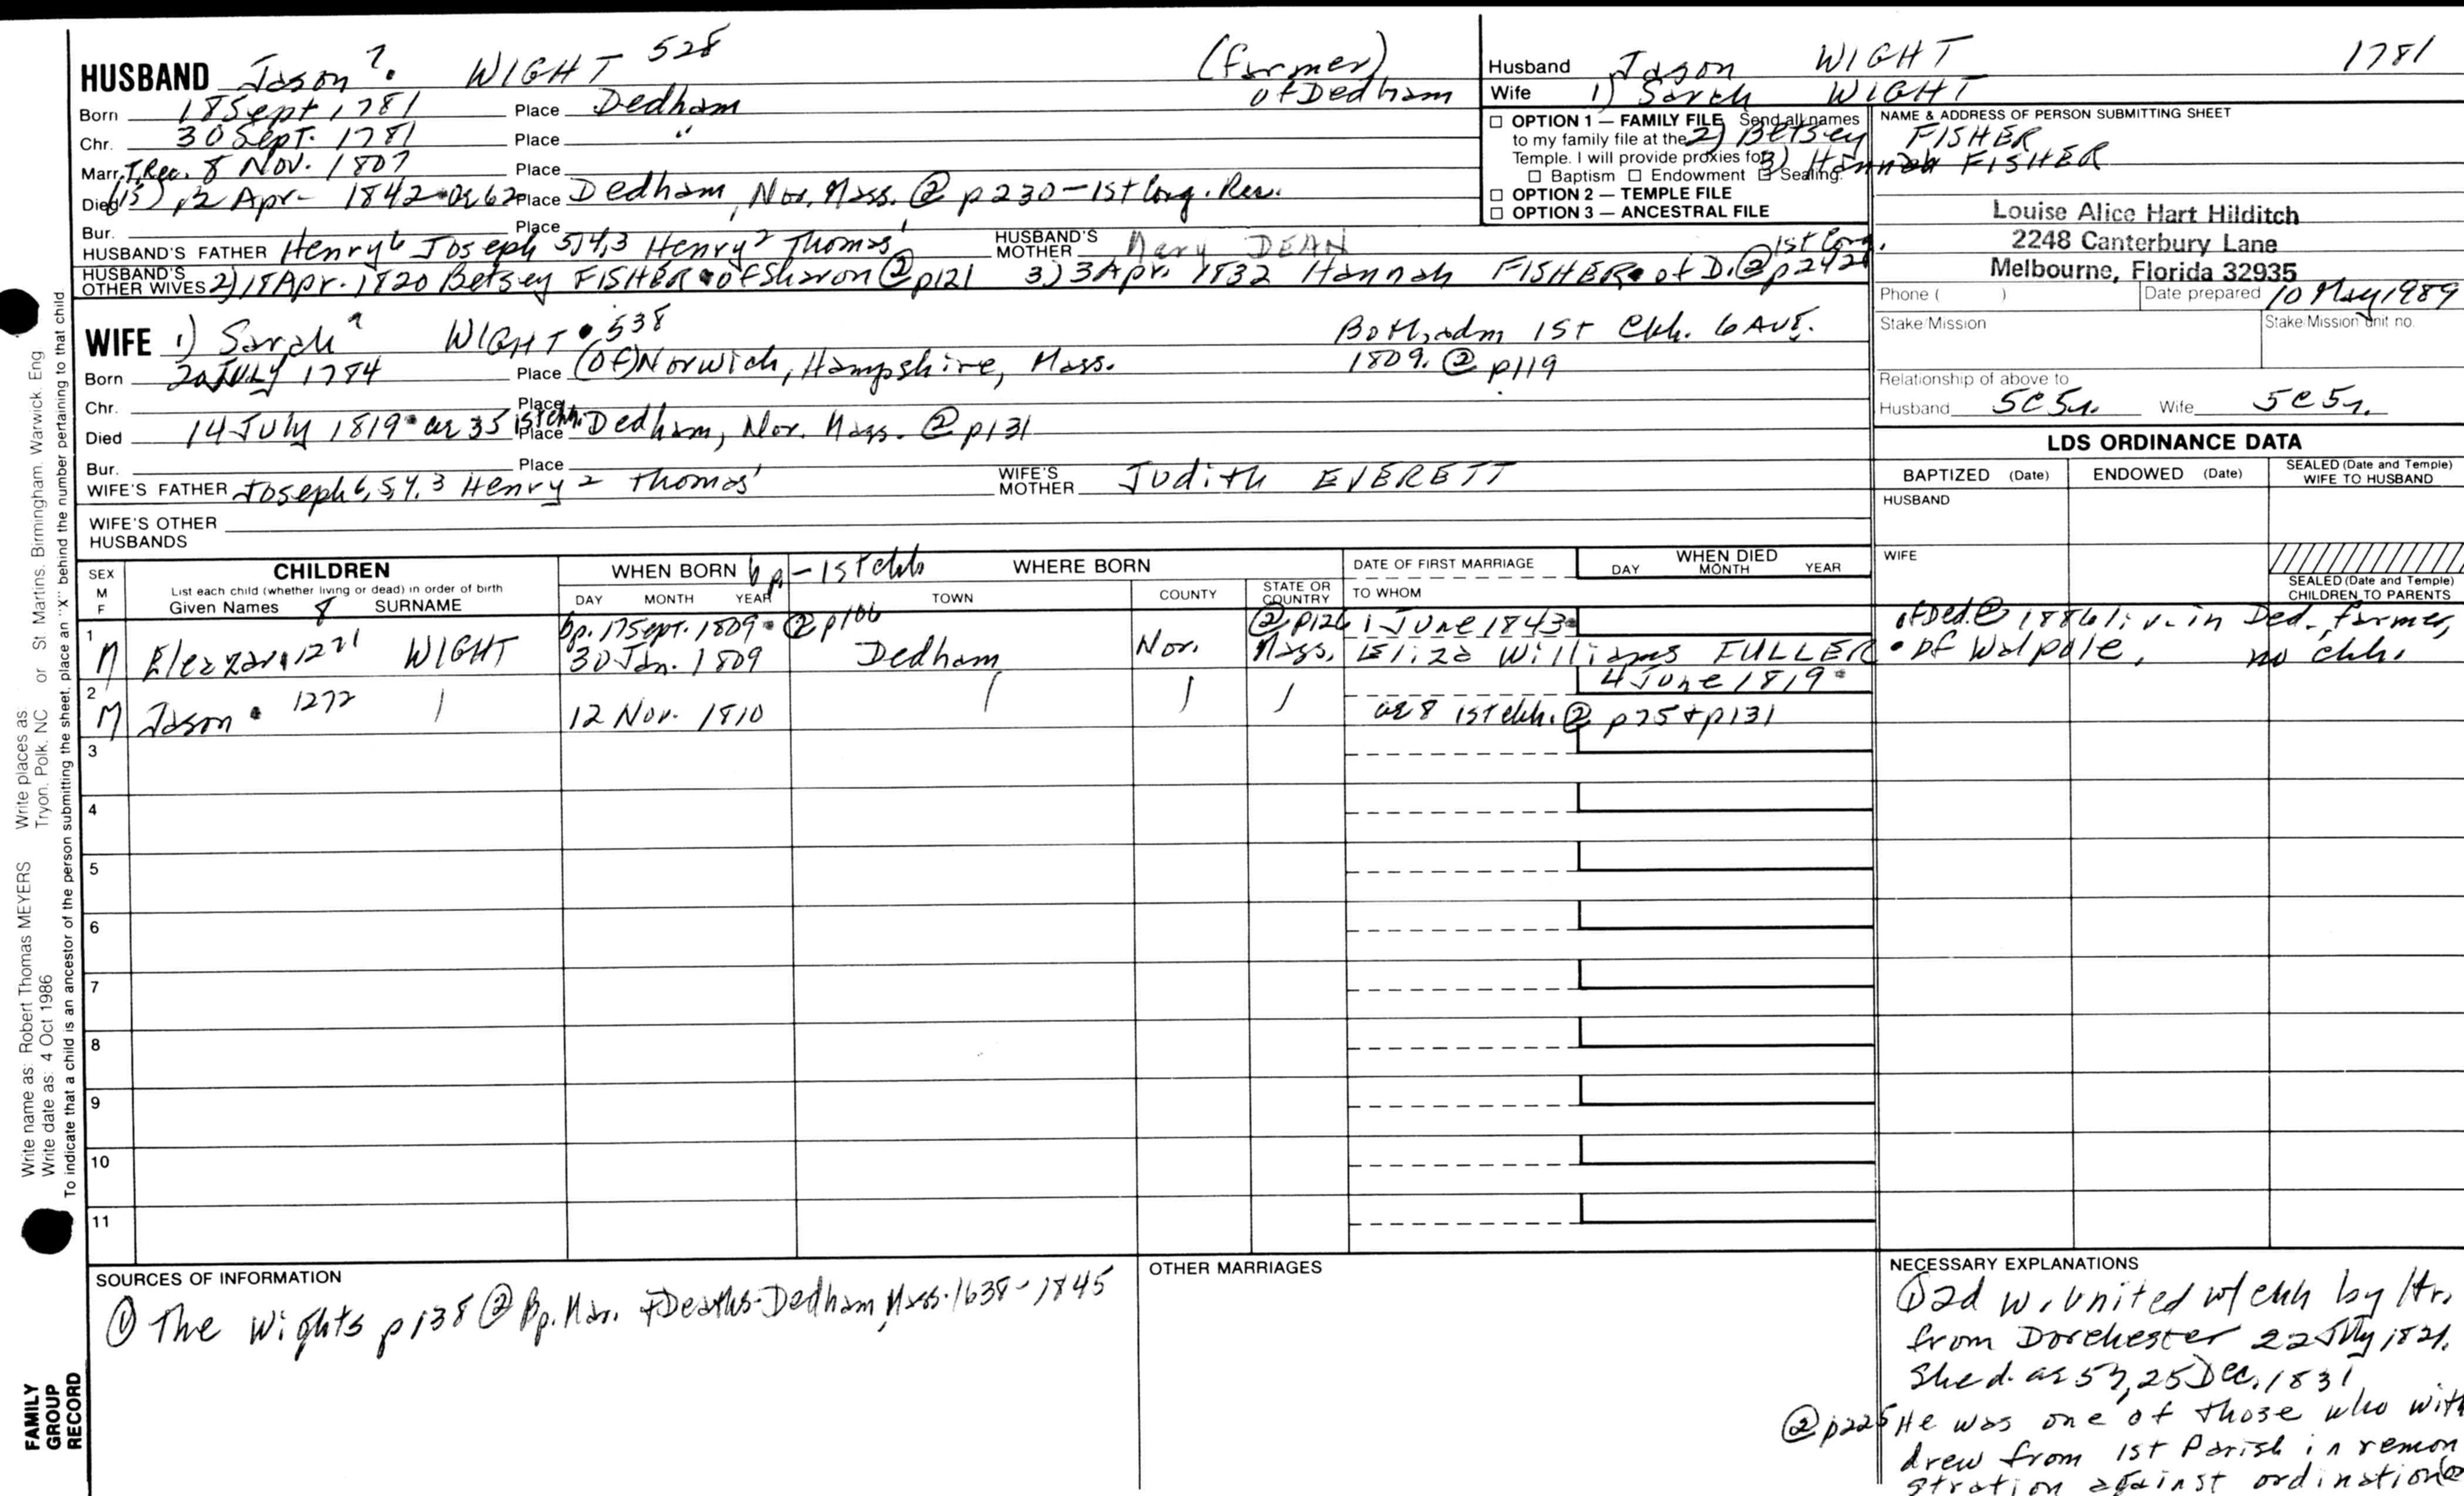 HUSBAND Jason 7. WIGHT 528 (farmer) of Dedham
Born 18 Sept 1781 Place Dedham
Chr. 30 Sept. 1781 Place "
Marr. T.Rec. 8 Nov. 1807 Place
Died (15) 12 Apr- 1842 • ae 62 Place Dedham, Nor. Mass. ② p230-1st Cong. Rec.
Bur. Place
HUSBAND'S FATHER Henry 6 Joseph 5,4,3 Henry 2 Thomas 1 HUSBAND'S MOTHER Mary DEAN
HUSBAND'S OTHER WIVES 2) 18 Apr. 1820 Betsey FISHER • of Sharon ② p121 3) 3 Apr. 1832 Hannah FISHER • of D. ② p242 1st Cong.
WIFE 1) Sarah 7 WIGHT • 538 Both adm 1st Chh. 6 Aug.
1809. ② p119
Born 20 July 1784 Place (of) Norwich, Hampshire, Mass.
Chr. Place
Died 14 July 1819 • ae 35 1st chh. Place Dedham, Nor. Mass. ② p131
Bur. Place
WIFE'S FATHER Joseph 6,5,4,3 Henry 2 Thomas 1 WIFE'S MOTHER Judith EVERETT
WIFE'S OTHER HUSBANDS
Husband Jason WIGHT 1781
Wife 1) Sarah WIGHT
2) Betsey FISHER
3) Hannah FISHER
☐ OPTION 1 — FAMILY FILE Send all names
to my family file at the
Temple. I will provide proxies for
☐ Baptism ☐ Endowment ☐ Sealing.
☐ OPTION 2 — TEMPLE FILE
☐ OPTION 3 — ANCESTRAL FILE
NAME & ADDRESS OF PERSON SUBMITTING SHEET
Louise Alice Hart Hilditch
2248 Canterbury Lane
Melbourne, Florida 32935
Phone ( ) Date prepared 10 May 1989
Stake/Mission Stake/Mission unit no.
Relationship of above to
Husband 5C5r. Wife 5C5r.
LDS ORDINANCE DATA
BAPTIZED (Date) ENDOWED (Date) SEALED (Date and Temple) WIFE TO HUSBAND
HUSBAND
WIFE
SEALED (Date and Temple) CHILDREN TO PARENTS
SEX M F CHILDREN List each child (whether living or dead) in order of birth Given Names 8 SURNAME
WHEN BORN bp - 1st chh DAY MONTH YEAR
WHERE BORN TOWN COUNTY STATE OR COUNTRY
DATE OF FIRST MARRIAGE TO WHOM
WHEN DIED DAY MONTH YEAR
1 bp. 17 Sept. 1809 • ② p106 ② p126 1 June 1843 • of Ded. ② 1886 liv. in Ded. farmer,
M Eleazar • 1271 WIGHT 30 Jan. 1809 Dedham Nor. Mass. Eliza Williams FULLER • of Walpole, no chh.
2 4 June 1819 •
M Jason • 1272 | 12 Nov. 1810 | | | ae 8 1st chh. ② p75 + p131
3
4
5
6
7
8
9
10
11
SOURCES OF INFORMATION
① The Wights p138 ② Bp. Mar. + Deaths-Dedham, Mass. 1638-1845
OTHER MARRIAGES
NECESSARY EXPLANATIONS
① 2d w. united w/ chh by ltr.
from Dorchester 22 July 1821.
She d. ae 53, 25 Dec. 1831
② p225 He was one of those who with
drew from 1st Parish in remon
stration against ordination
Write name as: Robert Thomas MEYERS Write places as: Tryon, Polk, NC or St. Martins, Birmingham, Warwick, Eng.
Write date as: 4 Oct 1986
To indicate that a child is an ancestor of the person submitting the sheet, place an "X" behind the number pertaining to that child.
FAMILY
GROUP
RECORD